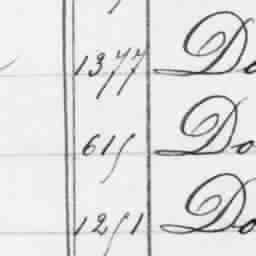 1377 Do
615 Do
1251 Do